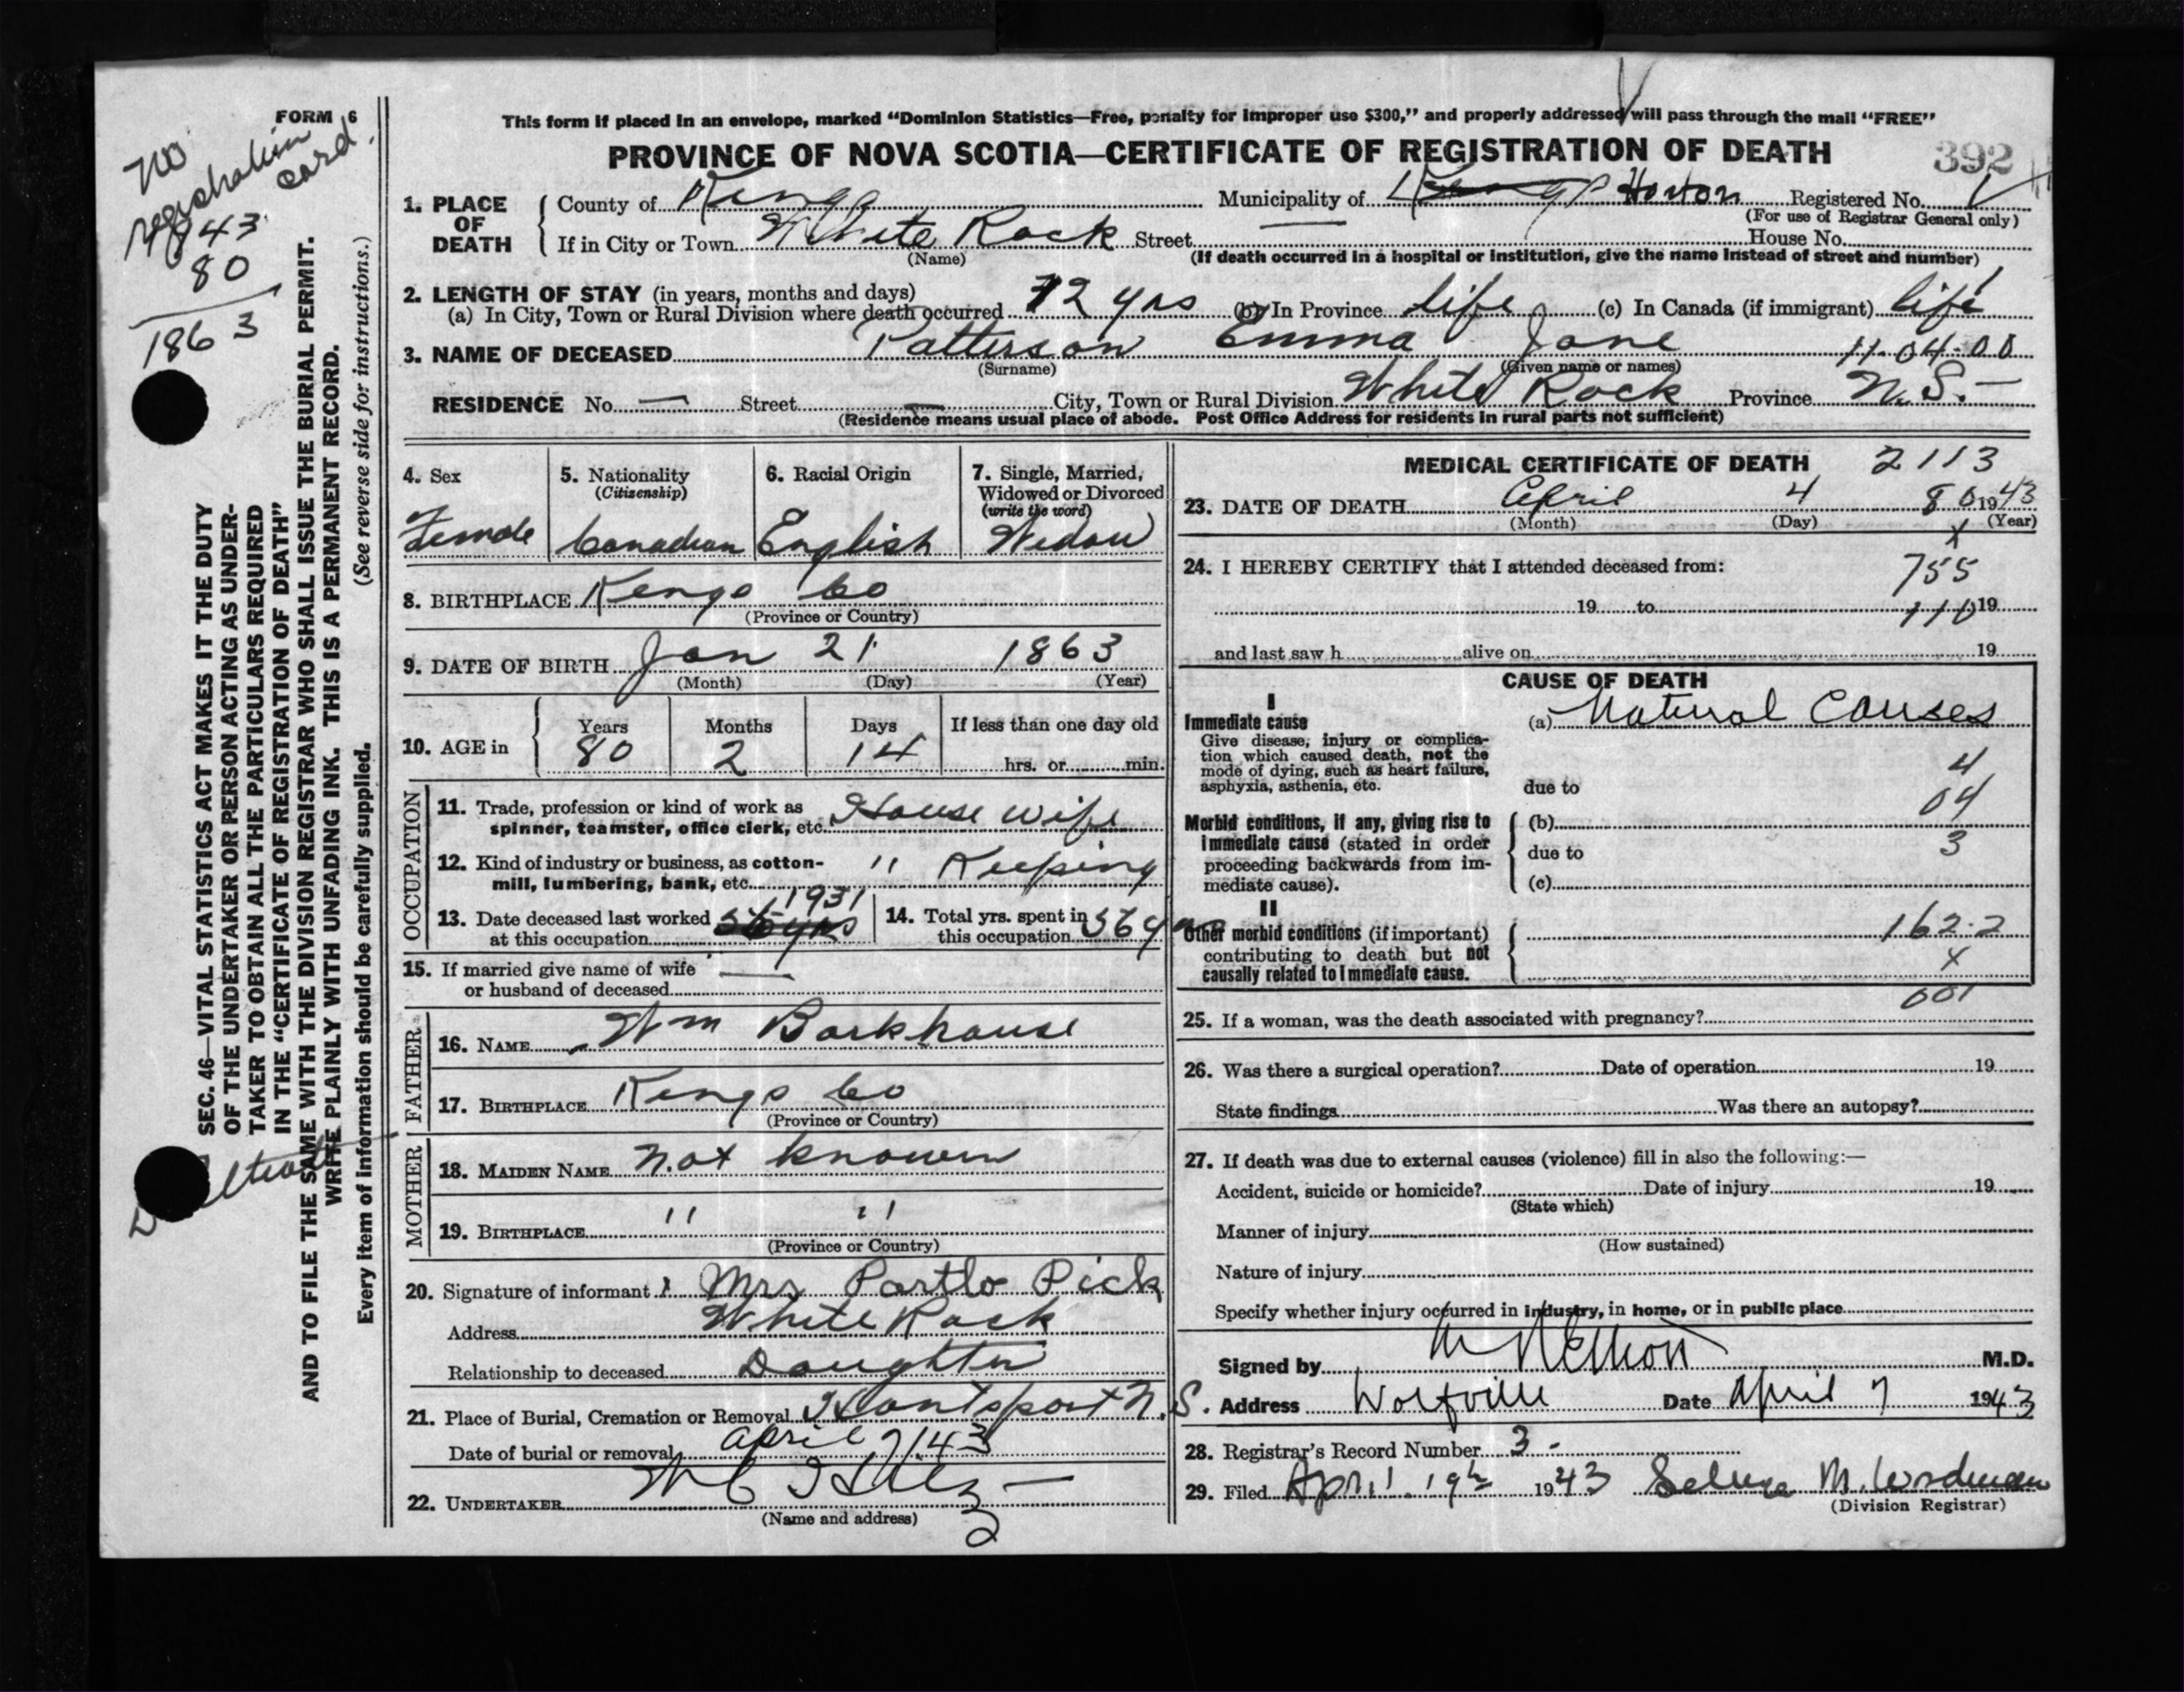 FORM 6
No
registration
card.
1943
80
1863
SEC. 46—VITAL STATISTICS ACT MAKES IT THE DUTY
OF THE UNDERTAKER OR PERSON ACTING AS UNDER-
TAKER TO OBTAIN ALL THE PARTICULARS REQUIRED
IN THE "CERTIFICATE OF REGISTRATION OF DEATH"
AND TO FILE THE SAME WITH THE DIVISION REGISTRAR WHO SHALL ISSUE THE BURIAL PERMIT.
WRITE PLAINLY WITH UNFADING INK. THIS IS A PERMANENT RECORD.
Every item of information should be carefully supplied. (See reverse side for instructions.)
This form if placed in an envelope, marked "Dominion Statistics—Free, penalty for improper use $300," and properly addressed will pass through the mail "FREE"
PROVINCE OF NOVA SCOTIA—CERTIFICATE OF REGISTRATION OF DEATH 392
1. PLACE OF DEATH County of Kings Municipality of Kings Horton Registered No.
(For use of Registrar General only)
If in City or Town White Rock Street — House No.
(Name) (If death occurred in a hospital or institution, give the name instead of street and number)
2. LENGTH OF STAY (in years, months and days)
(a) In City, Town or Rural Division where death occurred 72 yrs (b) In Province life (c) In Canada (if immigrant) life
3. NAME OF DECEASED Patterson Emma Jane 11-04-00
(Surname) (Given name or names)
RESIDENCE No. — Street — City, Town or Rural Division White Rock Province N.S. —
(Residence means usual place of abode. Post Office Address for residents in rural parts not sufficient)
4. Sex 5. Nationality 6. Racial Origin 7. Single, Married,
(Citizenship) Widowed or Divorced
(write the word)
Female Canadian English Widow
8. BIRTHPLACE Kings Co
(Province or Country)
9. DATE OF BIRTH Jan 21 1863
(Month) (Day) (Year)
10. AGE in Years Months Days If less than one day old
80 2 14 hrs. or min.
OCCUPATION
11. Trade, profession or kind of work as
spinner, teamster, office clerk, etc. House wife
12. Kind of industry or business, as cotton-
mill, lumbering, bank, etc. " Keeping
13. Date deceased last worked 1931
at this occupation
14. Total yrs. spent in
this occupation 56 yrs
15. If married give name of wife —
or husband of deceased
FATHER
16. NAME Wm Barkhouse
17. BIRTHPLACE Kings Co
(Province or Country)
MOTHER
18. MAIDEN NAME Not known
19. BIRTHPLACE " "
(Province or Country)
20. Signature of informant Mrs Partlo Pick
Address White Rock
Relationship to deceased Daughter
21. Place of Burial, Cremation or Removal Hantsport N.S.
Date of burial or removal April 7/43
22. UNDERTAKER
(Name and address)
MEDICAL CERTIFICATE OF DEATH 2113
23. DATE OF DEATH April 4 80 1943
(Month) (Day) (Year)
x
24. I HEREBY CERTIFY that I attended deceased from: 755
19 to 110 19
and last saw h alive on 19
CAUSE OF DEATH
I
Immediate cause (a) Natural Causes
Give disease, injury or complica-
tion which caused death, not the
mode of dying, such as heart failure,
asphyxia, asthenia, etc.
4
due to
04
Morbid conditions, if any, giving rise to (b)
immediate cause (stated in order due to 3
proceeding backwards from im-
mediate cause). (c)
II
Other morbid conditions (if important) 162.2
contributing to death but not x
causally related to immediate cause.
001
25. If a woman, was the death associated with pregnancy?
26. Was there a surgical operation? Date of operation 19
State findings Was there an autopsy?
27. If death was due to external causes (violence) fill in also the following:—
Accident, suicide or homicide? Date of injury 19
(State which)
Manner of injury
(How sustained)
Nature of injury
Specify whether injury occurred in industry, in home, or in public place
Signed by M R Elliott M.D.
Address Wolfville Date April 7 1943
28. Registrar's Record Number 3 -
29. Filed April 19th 1943 M. Wordman
(Division Registrar)